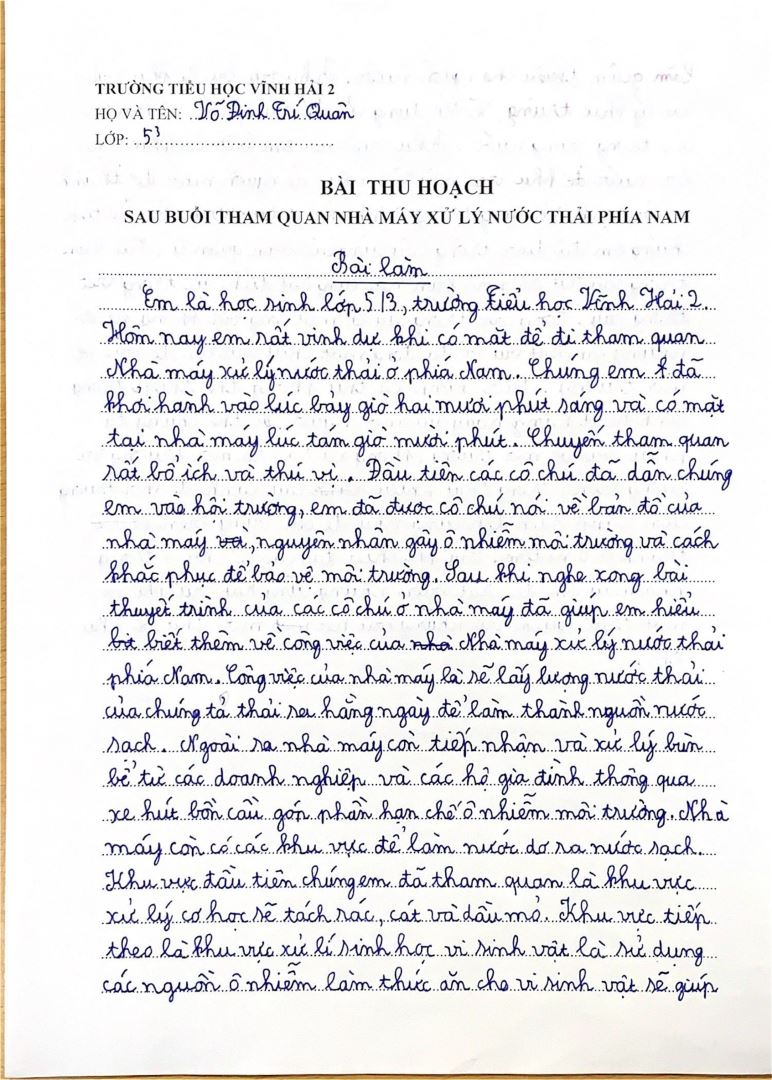 TRƯỜNG TIỂU HỌC VĨNH HẢI 2
HỌ VÀ TÊN: Võ Đình Trí Quân
LỚP: 5³
BÀI THU HOẠCH
SAU BUỔI THAM QUAN NHÀ MÁY XỬ LÝ NƯỚC THẢI PHÍA NAM
Bài làm
Em là học sinh lớp 5/3, trường Tiểu học Vĩnh Hải 2.
Hôm nay em rất vinh dự khi có mặt để đi tham quan
Nhà máy xử lý nước thải ở phía Nam. Chúng em đã
khởi hành vào lúc bảy giờ hai mươi phút sáng và có mặt
tại nhà máy lúc tám giờ mười phút. Chuyến tham quan
rất bổ ích và thú vị. Đầu tiên các cô chú đã dẫn chúng
em vào hội trường, em đã được cô chú nói về bản đồ của
nhà máy và, nguyên nhân gây ô nhiễm môi trường và cách
khắc phục để bảo vệ môi trường. Sau khi nghe xong bài
thuyết trình của các cô chú ở nhà máy đã giúp em hiểu
bit biết thêm về công việc của nhà Nhà máy xử lý nước thải
phía Nam. Công việc của nhà máy là sẽ lấy lượng nước thải
của chúng ta thải ra hằng ngày để làm thành nguồn nước
sạch. Ngoài ra nhà máy còn tiếp nhận và xử lý bùn
bể từ các doanh nghiệp và các hộ gia đình thông qua
xe hút bồn cầu góp phần hạn chế ô nhiễm môi trường. Nhà
máy còn có các khu vực để làm nước dơ ra nước sạch.
Khu vực đầu tiên chúng em đã tham quan là khu vực
xử lý cơ học sẽ tách rác, cát và dầu mỏ. Khu vực tiếp
theo là khu vực xử lí sinh học vi sinh vật là sử dụng
các nguồn ô nhiễm làm thức ăn cho vi sinh vật sẽ giúp